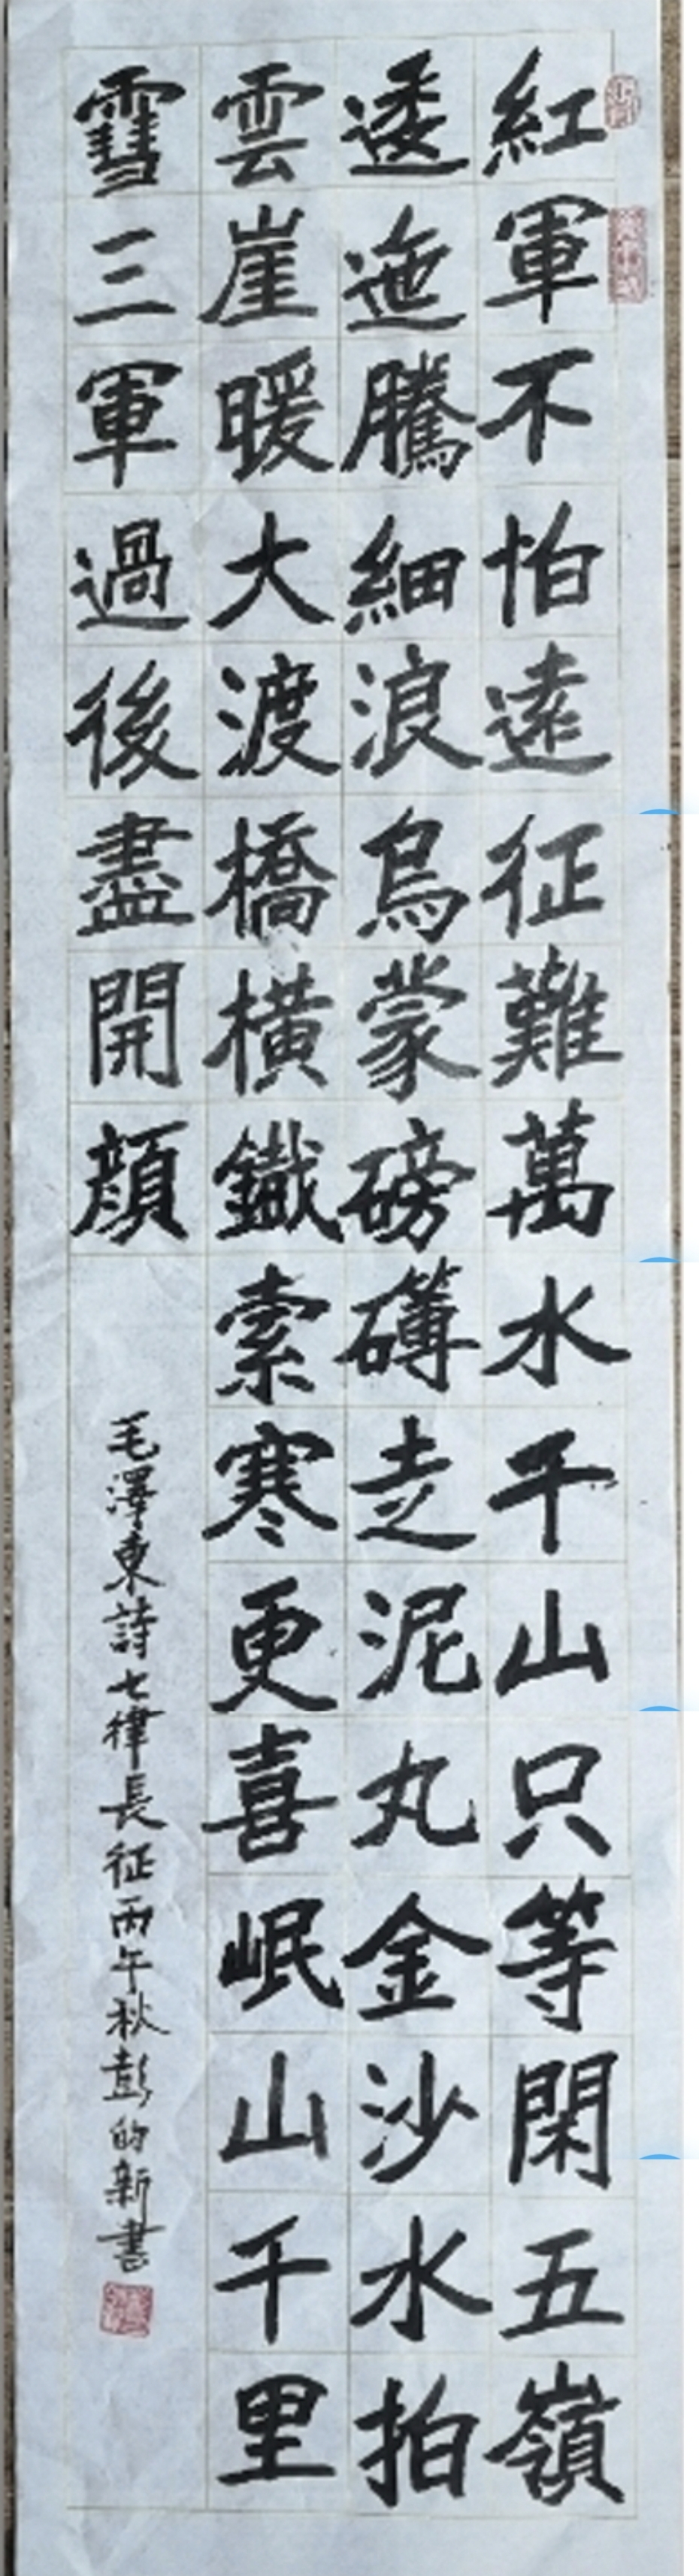 紅軍不怕遠征難萬水千山只等閑五嶺
逶迤騰細浪烏蒙磅礴走泥丸金沙水拍
雲崖暖大渡橋橫鐵索寒更喜岷山千里
雪三軍過後盡開顏
毛澤東詩七律長征丙午秋彭的新書